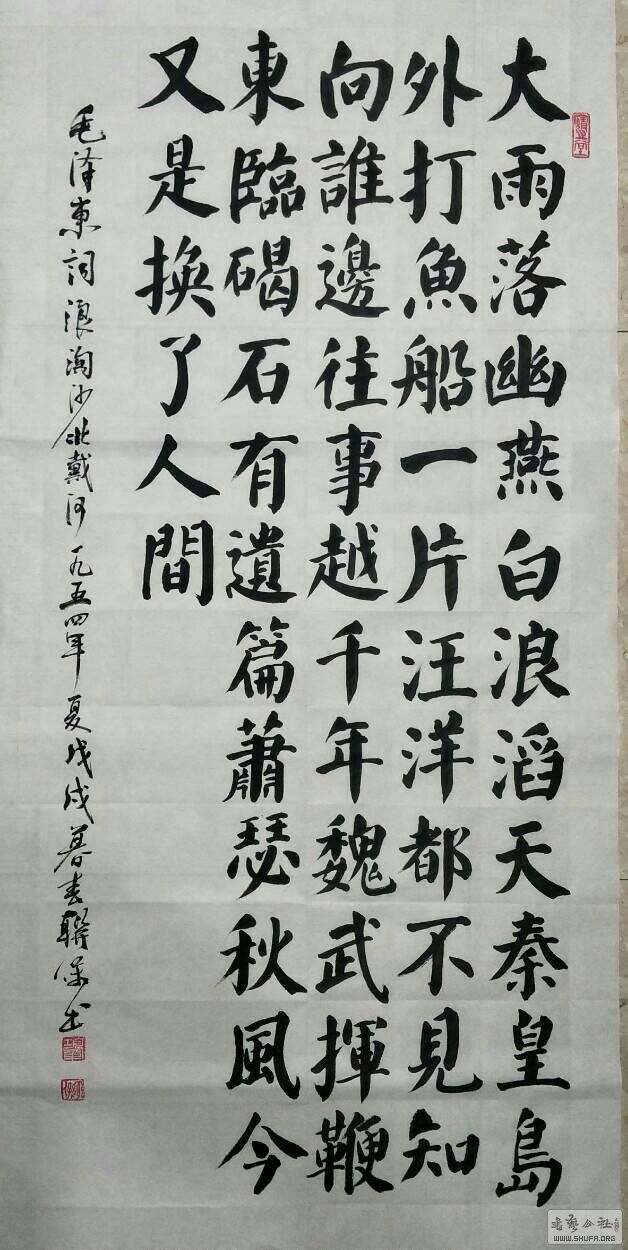 大雨落幽燕白浪滔天秦皇島
外打魚船一片汪洋都不見知
向誰邊往事越千年魏武揮鞭
東臨碣石有遺篇蕭瑟秋風今
又是換了人間
毛泽東词浪淘沙北戴河一九五四年夏戊戌暮春聯 书
WWW.SHUFA.ORG